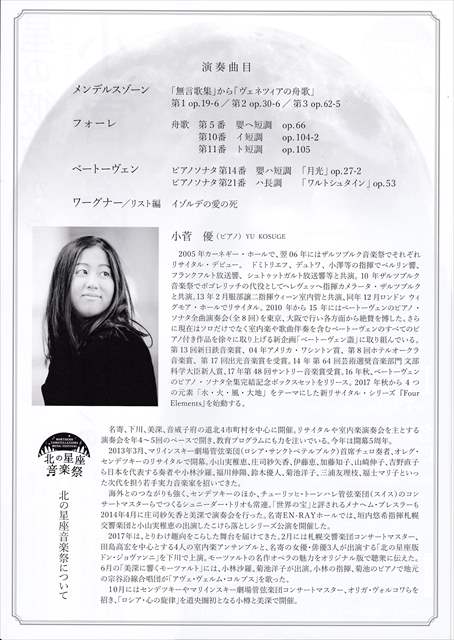 演奏曲目
メンデルスゾーン 「無言歌集」から「ヴェネツィアの舟歌」
第1 op.19-6 ／ 第2 op.30-6 ／ 第3 op.62-5
フォーレ 舟歌 第5番 嬰ヘ短調 op.66
第10番 イ短調 op.104-2
第11番 ト短調 op.105
ベートーヴェン ピアノソナタ第14番 嬰ハ短調 「月光」op.27-2
ピアノソナタ第21番 ハ長調 「ワルトシュタイン」op.53
ワーグナー／リスト編 イゾルデの愛の死
小菅 優（ピアノ）YU KOSUGE
2005年カーネギー・ホールで、翌06年にはザルツブルク音楽祭でそれぞれ
リサイタル・デビュー。 ドミトリエフ、デュトワ、小澤等の指揮でベルリン響、
フランクフルト放送響、シュトゥットガルト放送響等と共演。10年ザルツブルク
音楽祭でポゴレリッチの代役としてヘレヴェッヘ指揮カメラータ・ザルツブルク
と共演。13年2月服部譲二指揮ウィーン室内管と共演、同年12月ロンドン ウィ
グモア・ホールでリサイタル。2010年から15年にはベートーヴェンのピアノ・
ソナタ全曲演奏会（全8回）を東京、大阪で行い各方面から絶賛を博した。さら
に現在はソロだけでなく室内楽や歌曲伴奏を含むベートーヴェンのすべてのピ
アノ付き作品を徐々に取り上げる新企画「ベートーヴェン詣」に取り組んでいる。
第13回新日鉄音楽賞、04年アメリカ・ワシントン賞、第8回ホテルオークラ
音楽賞、第17回出光音楽賞を受賞。14年第64回芸術選奨音楽部門 文部
科学大臣新人賞、17年第48回サントリー音楽賞受賞。16年秋、ベートーヴェン
のピアノ・ソナタ全集完結記念ボックスセットをリリース。2017年秋から4つ
の元素「水・火・風・大地」をテーマにした新リサイタル・シリーズ『Four
Elements』を始動する。
NORTHERN
CONSTELLATIONS
MUSIC FESTIVAL
北の星座
音楽祭
北の星座音楽祭について
名寄、下川、美深、音威子府の道北4市町村を中心に開催。リサイタルや室内楽演奏会を主とする
演奏会を年4～5回のペースで開き、教育プログラムにも力を注いでいる。今年は開幕5周年。
2013年3月、マリインスキー劇場管弦楽団（ロシア・サンクトペテルブルク）首席チェロ奏者、オレグ・
センデツキーのリサイタルで開幕。小山実稚恵、庄司紗矢香、伊藤恵、加藤知子、山崎伸子、吉野直子
ら日本を代表する奏者や小林沙羅、福川伸陽、鈴木優人、菊池洋子、三浦友理枝、福士マリ子といっ
た次代を担う若手実力音楽家を招いてきた。
海外とのつながりも強く、センデツキーのほか、チューリッヒ・トーンハレ管弦楽団（スイス）のコン
サートマスターらでつくるシュニーダー・トリオも常連。「世界の宝」と評されるメナヘム・プレスラーも
2014年4月に庄司紗矢香と美深で演奏会を行った。名寄EN-RAYホールでは、垣内悠希指揮札幌
交響楽団と小山実稚恵の出演したこけら落としシリーズ公演を開催した。
2017年は、とりわけ趣向をこらした舞台を届けてきた。2月には札幌交響楽団コンサートマスター、
田島高宏を中心とする4人の室内楽アンサンブルと、名寄の女優・俳優3人が出演する「北の星座版
ドン・ジョヴァンニ」を下川で上演。モーツァルトの名作オペラの魅力をオリジナル版で聴衆に伝えた。
6月の「美深に響くモーツァルト」には、小林沙羅、菊池洋子が出演。小林の指揮、菊池のピアノで地元
の宗谷沿線合唱団が「アヴェ・ヴェルム・コルプス」を歌った。
10月にはセンデツキーやマリインスキー劇場管弦楽団コンサートマスター、オリガ・ヴォルコワらを
招き、「ロシア・心の旋律」を道央圏初となる小樽と美深で開催。